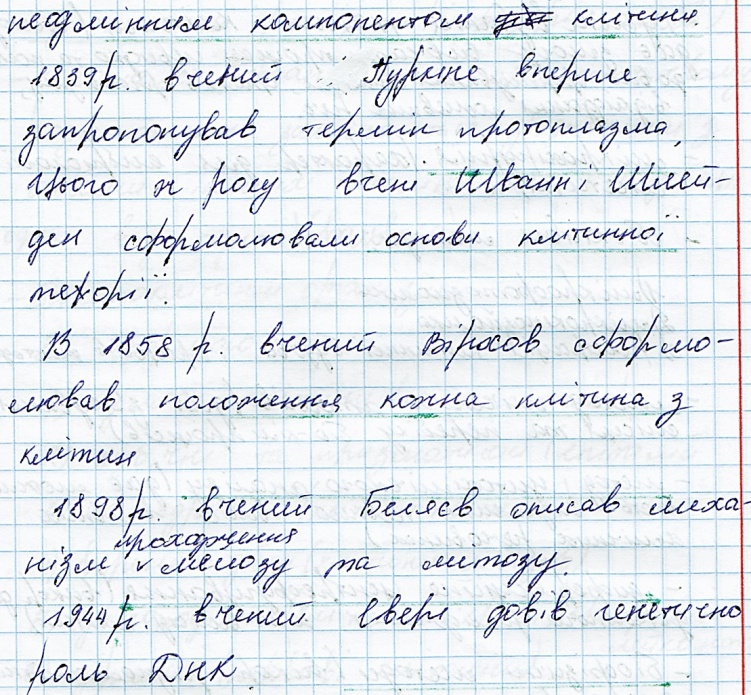 неодмінним компонентом клітини.
1839р. вчений Пуркіне вперше
запропонував термін протоплазма,
Цього ж року вчені Шванн і Шлей-
ден сформолювали основи клітинної
теорії.
В 1858 р. вчений Вірхов сформо-
лював положення кожна клітина з
клітин
1898р. вчений Беляєв описав меха-
нізм проходження мейозу та митозу.
1944р. вчений Евері довів генетично
роль ДНК